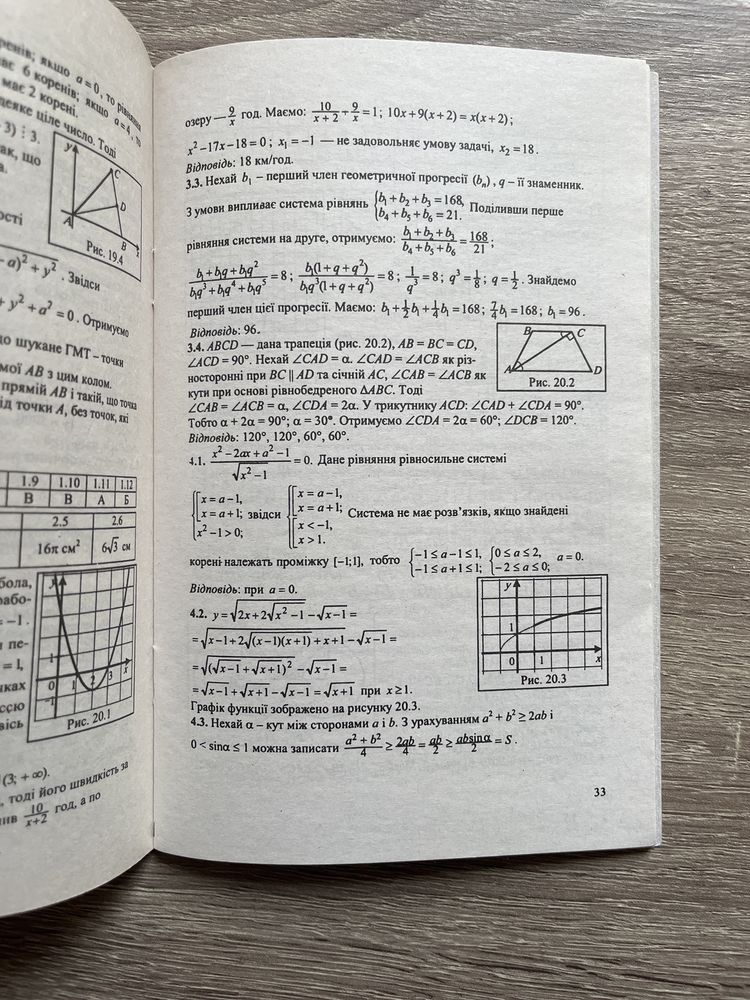 ренів; якщо a = 0, то рівняння
має 6 коренів; якщо a = 4, то
має 2 корені.
деяке ціле число. Тоді
3) ⋮ 3.
ак, що
y
C
D
A
B
x
Рис. 19.4
ості
− a)² + y² . Звідси
+ y² + a² = 0 . Отримуємо
що шукане ГМТ – точки
мої AB з цим колом.
прямій AB і такій, що точка
ід точки A, без точок, які
1.9 1.10 1.11 1.12
В В А Б
2.5 2.6
16π см² 6√3 см
бола,
рабо-
= −1 .
и пе-
= 1,
чках
ссю
вісь
y
1
0 1 2 3 x
−1
Рис. 20.1
(3; + ∞).
, тоді його швидкість за
ив 10/(x+2) год, а по
озеру — 9/x год. Маємо: 10/(x+2) + 9/x = 1; 10x + 9(x + 2) = x(x + 2);
x² − 17x − 18 = 0; x₁ = −1 — не задовольняє умову задачі, x₂ = 18.
Відповідь: 18 км/год.
3.3. Нехай b₁ – перший член геометричної прогресії (bₙ), q – її знаменник.
З умови випливає система рівнянь { b₁ + b₂ + b₃ = 168, b₄ + b₅ + b₆ = 21. Поділивши перше
рівняння системи на друге, отримуємо: (b₁ + b₂ + b₃)/(b₄ + b₅ + b₆) = 168/21;
(b₁ + b₁q + b₁q²)/(b₁q³ + b₁q⁴ + b₁q⁵) = 8; b₁(1 + q + q²)/(b₁q³(1 + q + q²)) = 8; 1/q³ = 8; q³ = 1/8; q = 1/2. Знайдемо
перший член цієї прогресії. Маємо: b₁ + 1/2 b₁ + 1/4 b₁ = 168; 7/4 b₁ = 168; b₁ = 96.
Відповідь: 96.
3.4. ABCD — дана трапеція (рис. 20.2), AB = BC = CD,
∠ACD = 90°. Нехай ∠CAD = α. ∠CAD = ∠ACB як різ-
носторонні при BC ∥ AD та січній AC, ∠CAB = ∠ACB як
кути при основі рівнобедреного ΔABC. Тоді
∠CAB = ∠ACB = α, ∠CDA = 2α. У трикутнику ACD: ∠CAD + ∠CDA = 90°.
Тобто α + 2α = 90°; α = 30°. Отримуємо ∠CDA = 2α = 60°; ∠DCB = 120°.
Відповідь: 120°, 120°, 60°, 60°.
B C
A D
Рис. 20.2
4.1. (x² − 2ax + a² − 1)/√(x² − 1) = 0. Дане рівняння рівносильне системі
{ [ x = a − 1, x = a + 1; x² − 1 > 0; звідси { [ x = a − 1, x = a + 1; [ x < −1, x > 1. Система не має розв’язків, якщо знайдені
корені належать проміжку [−1;1], тобто { −1 ≤ a − 1 ≤ 1, −1 ≤ a + 1 ≤ 1; { 0 ≤ a ≤ 2, −2 ≤ a ≤ 0; a = 0.
Відповідь: при a = 0.
4.2. y = √(2x + 2√(x² − 1)) − √(x − 1) =
= √(x − 1 + 2√((x − 1)(x + 1)) + x + 1) − √(x − 1) =
= √((√(x − 1) + √(x + 1))²) − √(x − 1) =
= √(x − 1) + √(x + 1) − √(x − 1) = √(x + 1) при x ≥ 1.
Графік функції зображено на рисунку 20.3.
y
1
0 1 x
Рис. 20.3
4.3. Нехай α – кут між сторонами a і b. З урахуванням a² + b² ≥ 2ab і
0 < sinα ≤ 1 можна записати (a² + b²)/4 ≥ 2ab/4 = ab/2 ≥ absinα/2 = S .
33